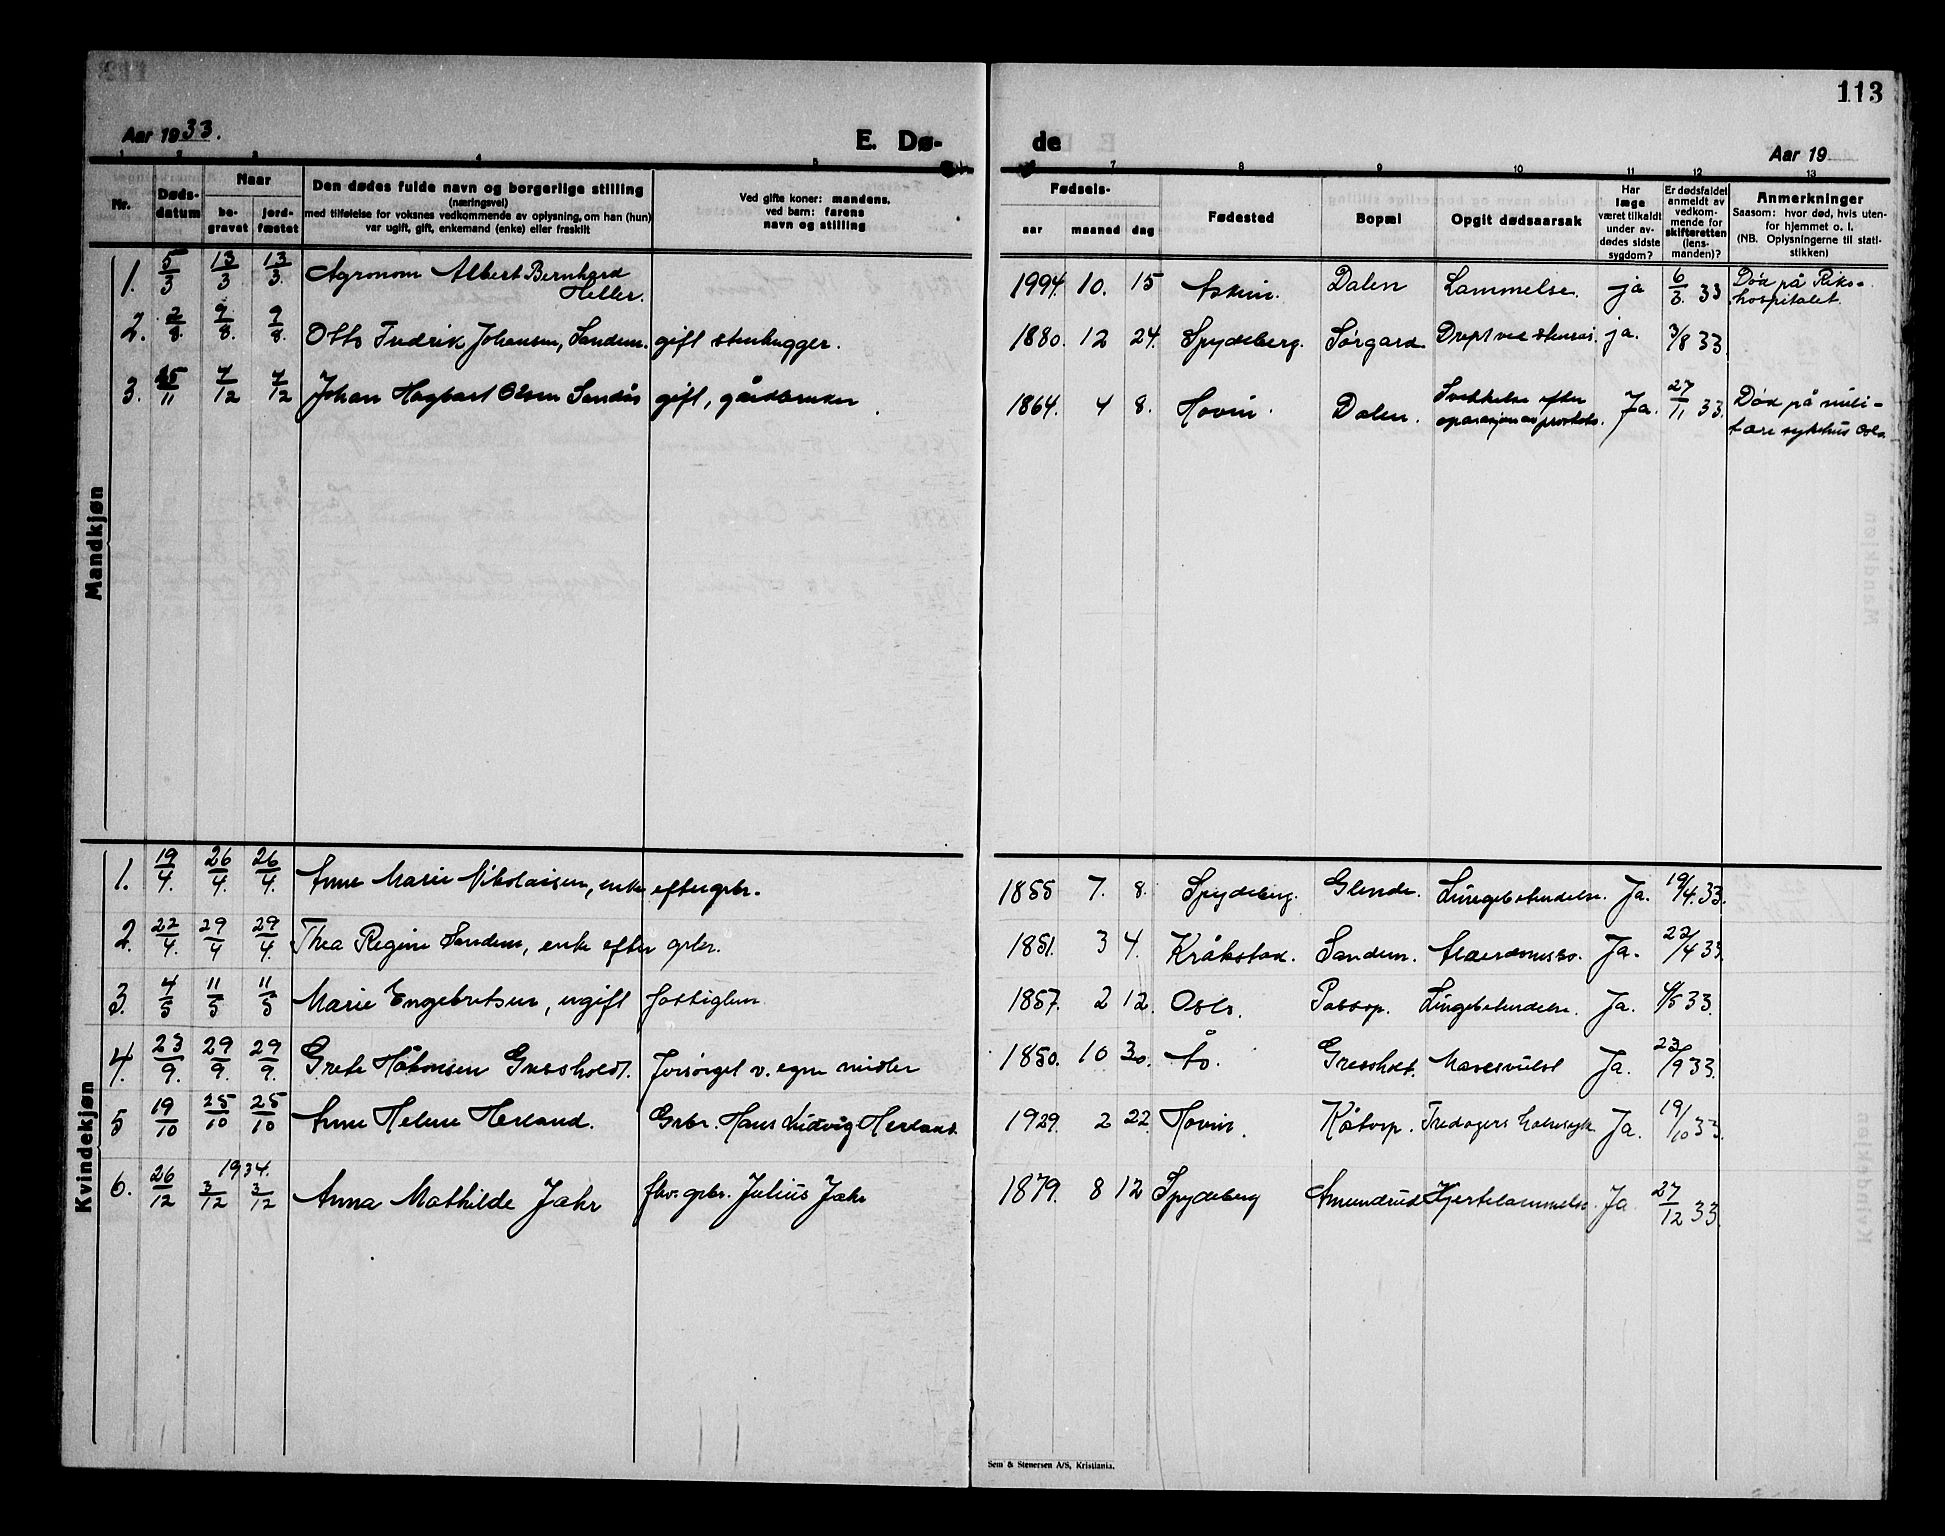 113
Aar 1933.
E. Dø-
de
Aar 19
1 2 3 4 5
7 8 9 10 11 12 13
Nr.
Døds-
datum
Naar
be-
gravet
jord-
fæstet
Den dødes fulde navn og borgerlige stilling
(næringsvei)
med tilføielse for voksnes vedkommende av oplysning, om han (hun)
var ugift, gift, enkemand (enke) eller fraskilt
Ved gifte koner: mandens,
ved barn: farens
navn og stilling
Fødsels-
aar maaned dag
Fødested
Bopæl
Opgit dødsaarsak
Har
læge
været tilkaldt
under av-
dødes sidste
sygdom?
Er dødsfaldet
anmeldt av
vedkom-
mende for
skifteretten
(lens-
manden)?
Anmerkninger
Saasom: hvor død, hvis uten-
for hjemmet o. l.
(NB. Oplysningerne til stati-
stikken)
Mandkjøn
1. 5/3 13/3 13/3. Agronom Albert Bernhard
Heller.
1994. 10. 15 Askim. Dalen Lammelse. ja 6/3 33 Død på Riks-
hospitalet.
2. 2/8. 9/8. 9/8. Otto Fredrik Johansen, Sandem. gift stenhugger. 1880. 12 24. Spydeberg. Sørgard Drept ved stensas. ja. 3/8 33.
3. 25/11 7/12 7/12 Johan Hagbart Olsen Sandås gift, gårdbruker. 1864. 4 8. Hovin. Dalen. Svekkelse efter
operasjon av prostata. Ja. 27/11 33. Død på mili-
tære sykehus Oslo.
Kvindekjøn
1. 19/4. 26/4. 26/4. Anne Marie Nikolaisen, enke efter grbr. 1855 7. 8. Spydeberg. Glende. Lungebetendelse. Ja. 19/4. 33.
2. 22/4. 29/4 29/4. Thea Regine Sandem, enke efter grbr. 1851. 3 4. Kråkstad. Sandem. Alderdomssv. Ja. 22/4 33.
3. 4/5 11/5 11/5 Marie Engebretsen, ugift fattiglem. 1857. 2 12. Oslo. Lungebetendelse. Ja. 4/5 33.
4. 23/9. 29/9. 29/9. Grete Håkonsen Gressholdt. Forsørget v. egne midler 1850. 10 30. Ås. Gressholt. Mavesvulst Ja. 23/9 33.
5 19/10 25/10 25/10 Anne Helene Herland. Grbr. Hans Ludvig Herland. 1929. 2 22. Hovin. Kåtorp. Tredagers halvesyke Ja. 19/10 33.
1934.
6. 26/12 3/12 3/12 Anna Mathilde Jahr fhv. grbr. Julius Jahr 1879. 8 12 Spydeberg Amundrud Hjertelammelse. Ja 27/12 33.
Sem & Stenersen A/S, Kristiania.